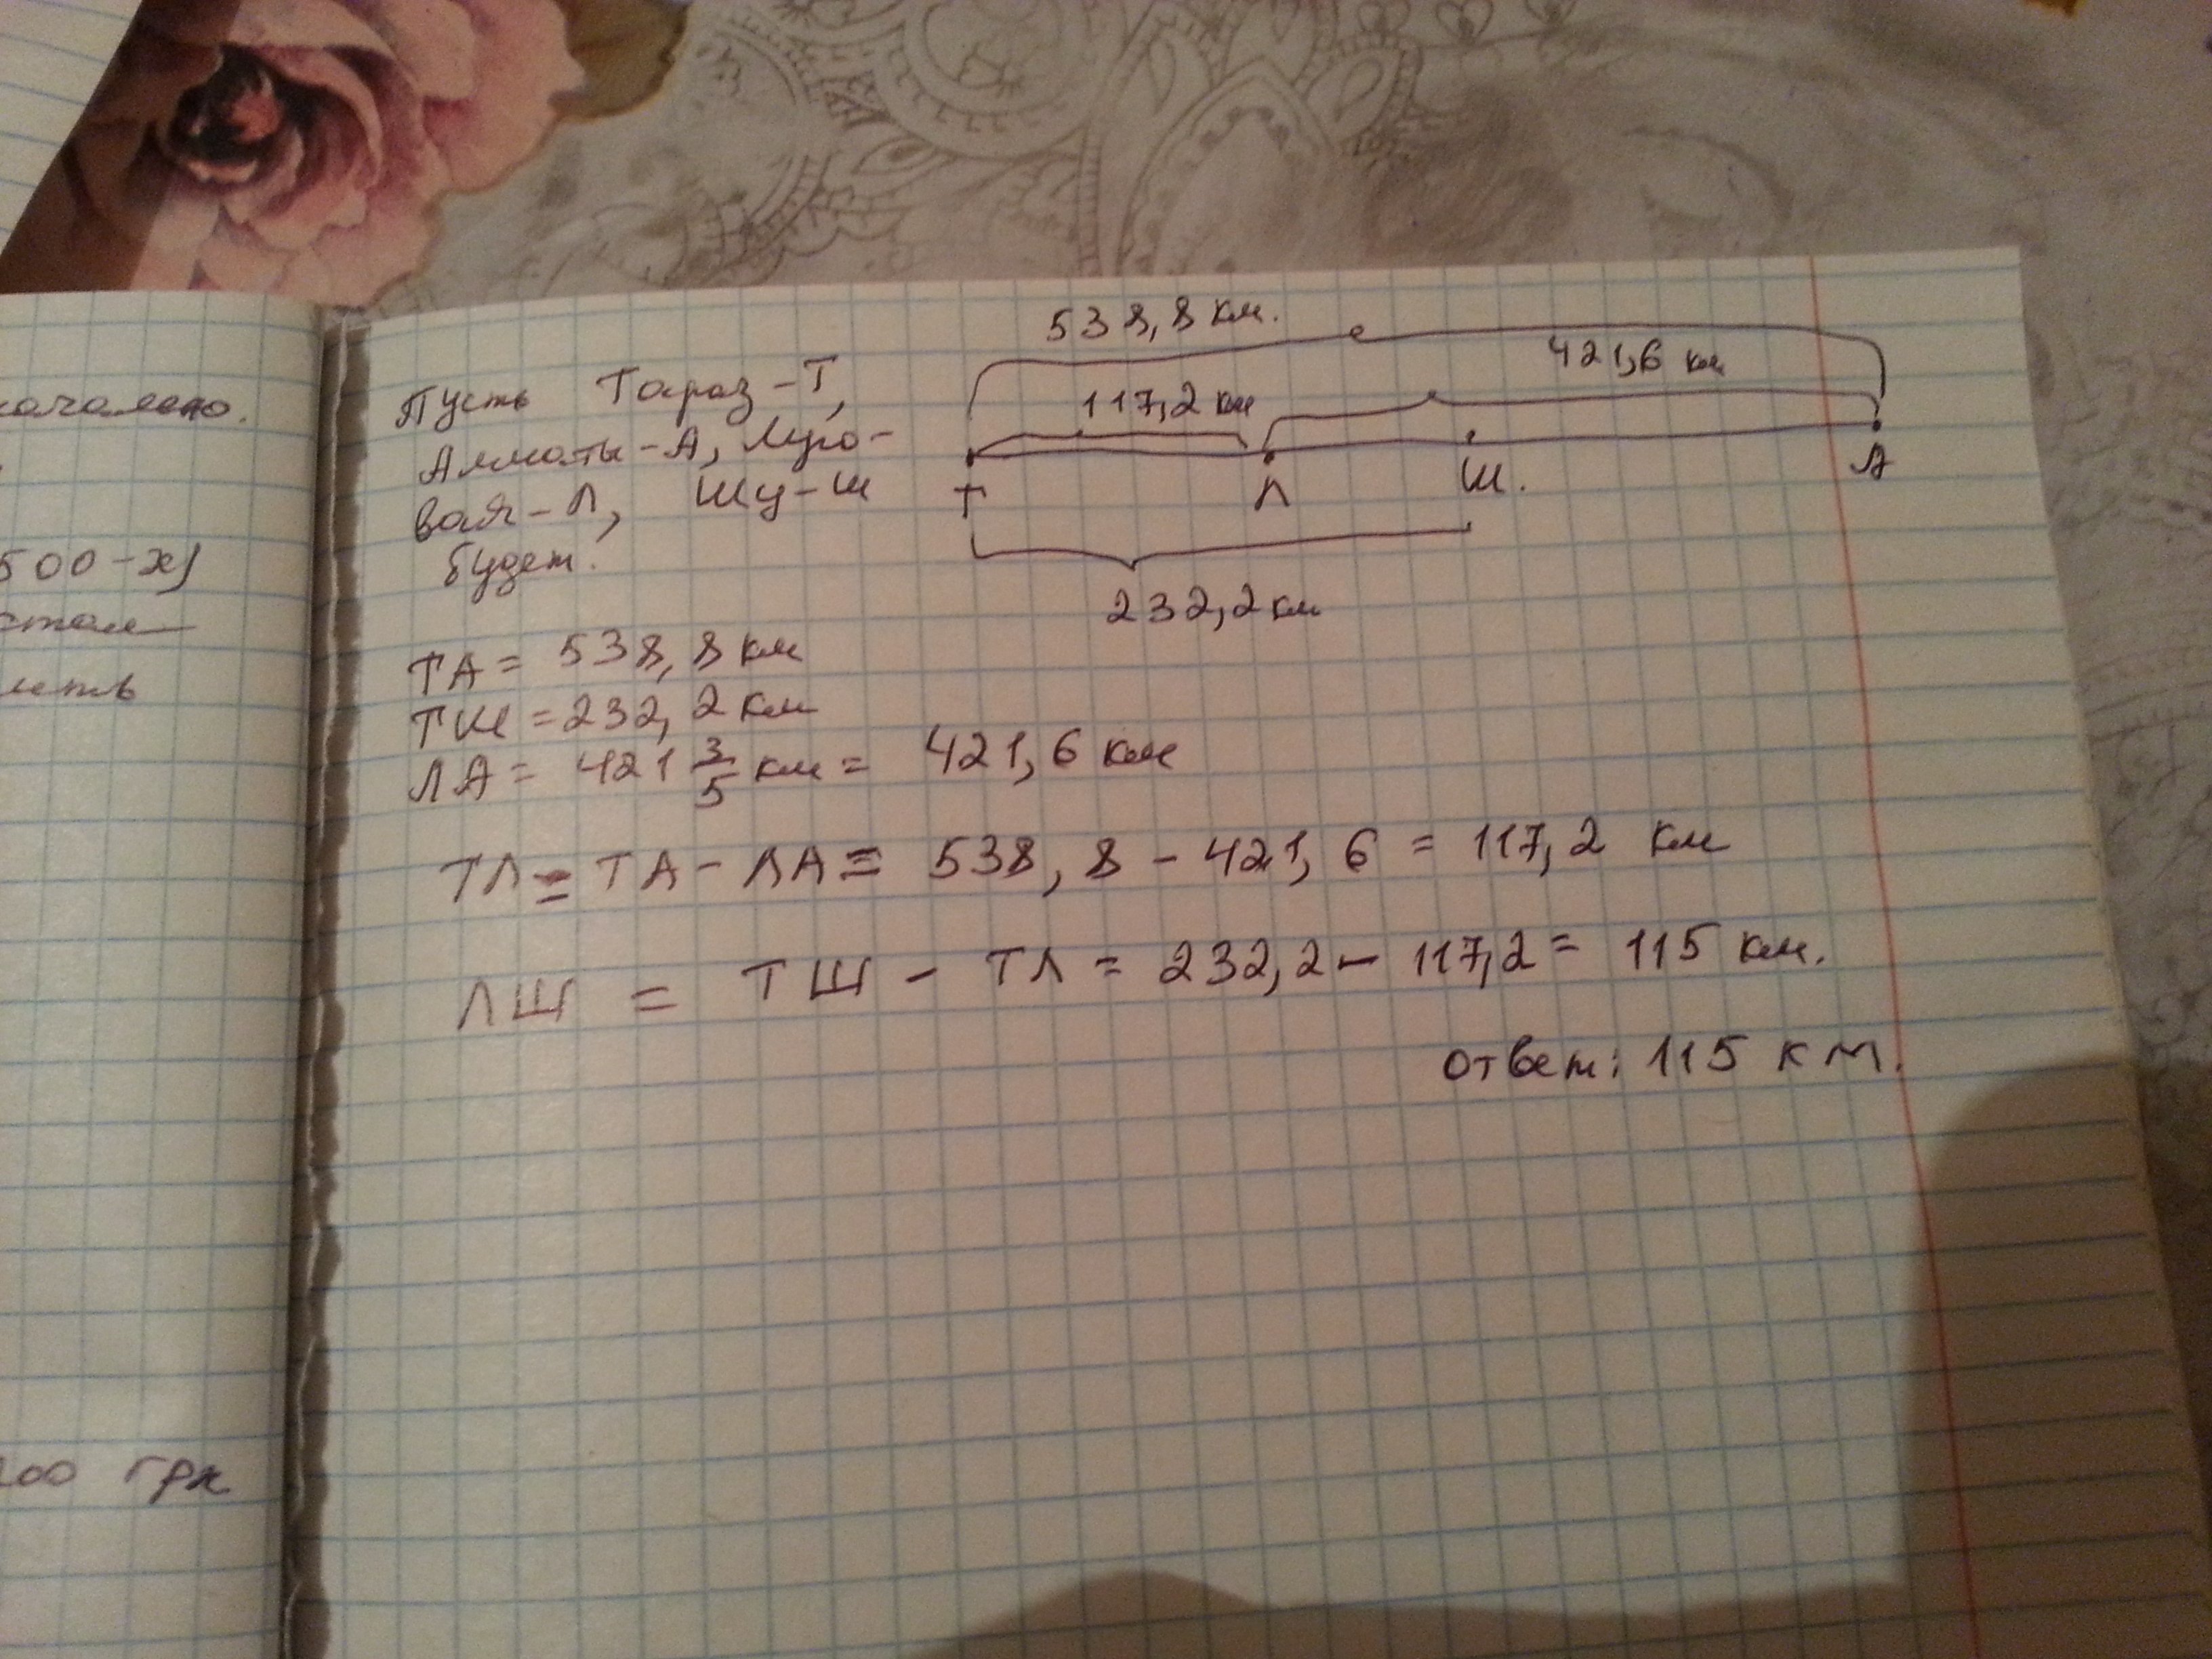 500-х)
200 грн
538,8 км.
421,6 км
117,2 км
Т Л Ш. А
232,2 км
Пусть Тараз-Т,
Алматы-А, Луго-
вая-Л, Шу-Ш
будет.
ТА = 538,8 км
ТШ = 232,2 км
ЛА = 421 3/5 км = 421,6 км
ТЛ = ТА - ЛА = 538,8 - 421,6 = 117,2 км
ЛШ = ТШ - ТЛ = 232,2 - 117,2 = 115 км.
ответ: 115 км.